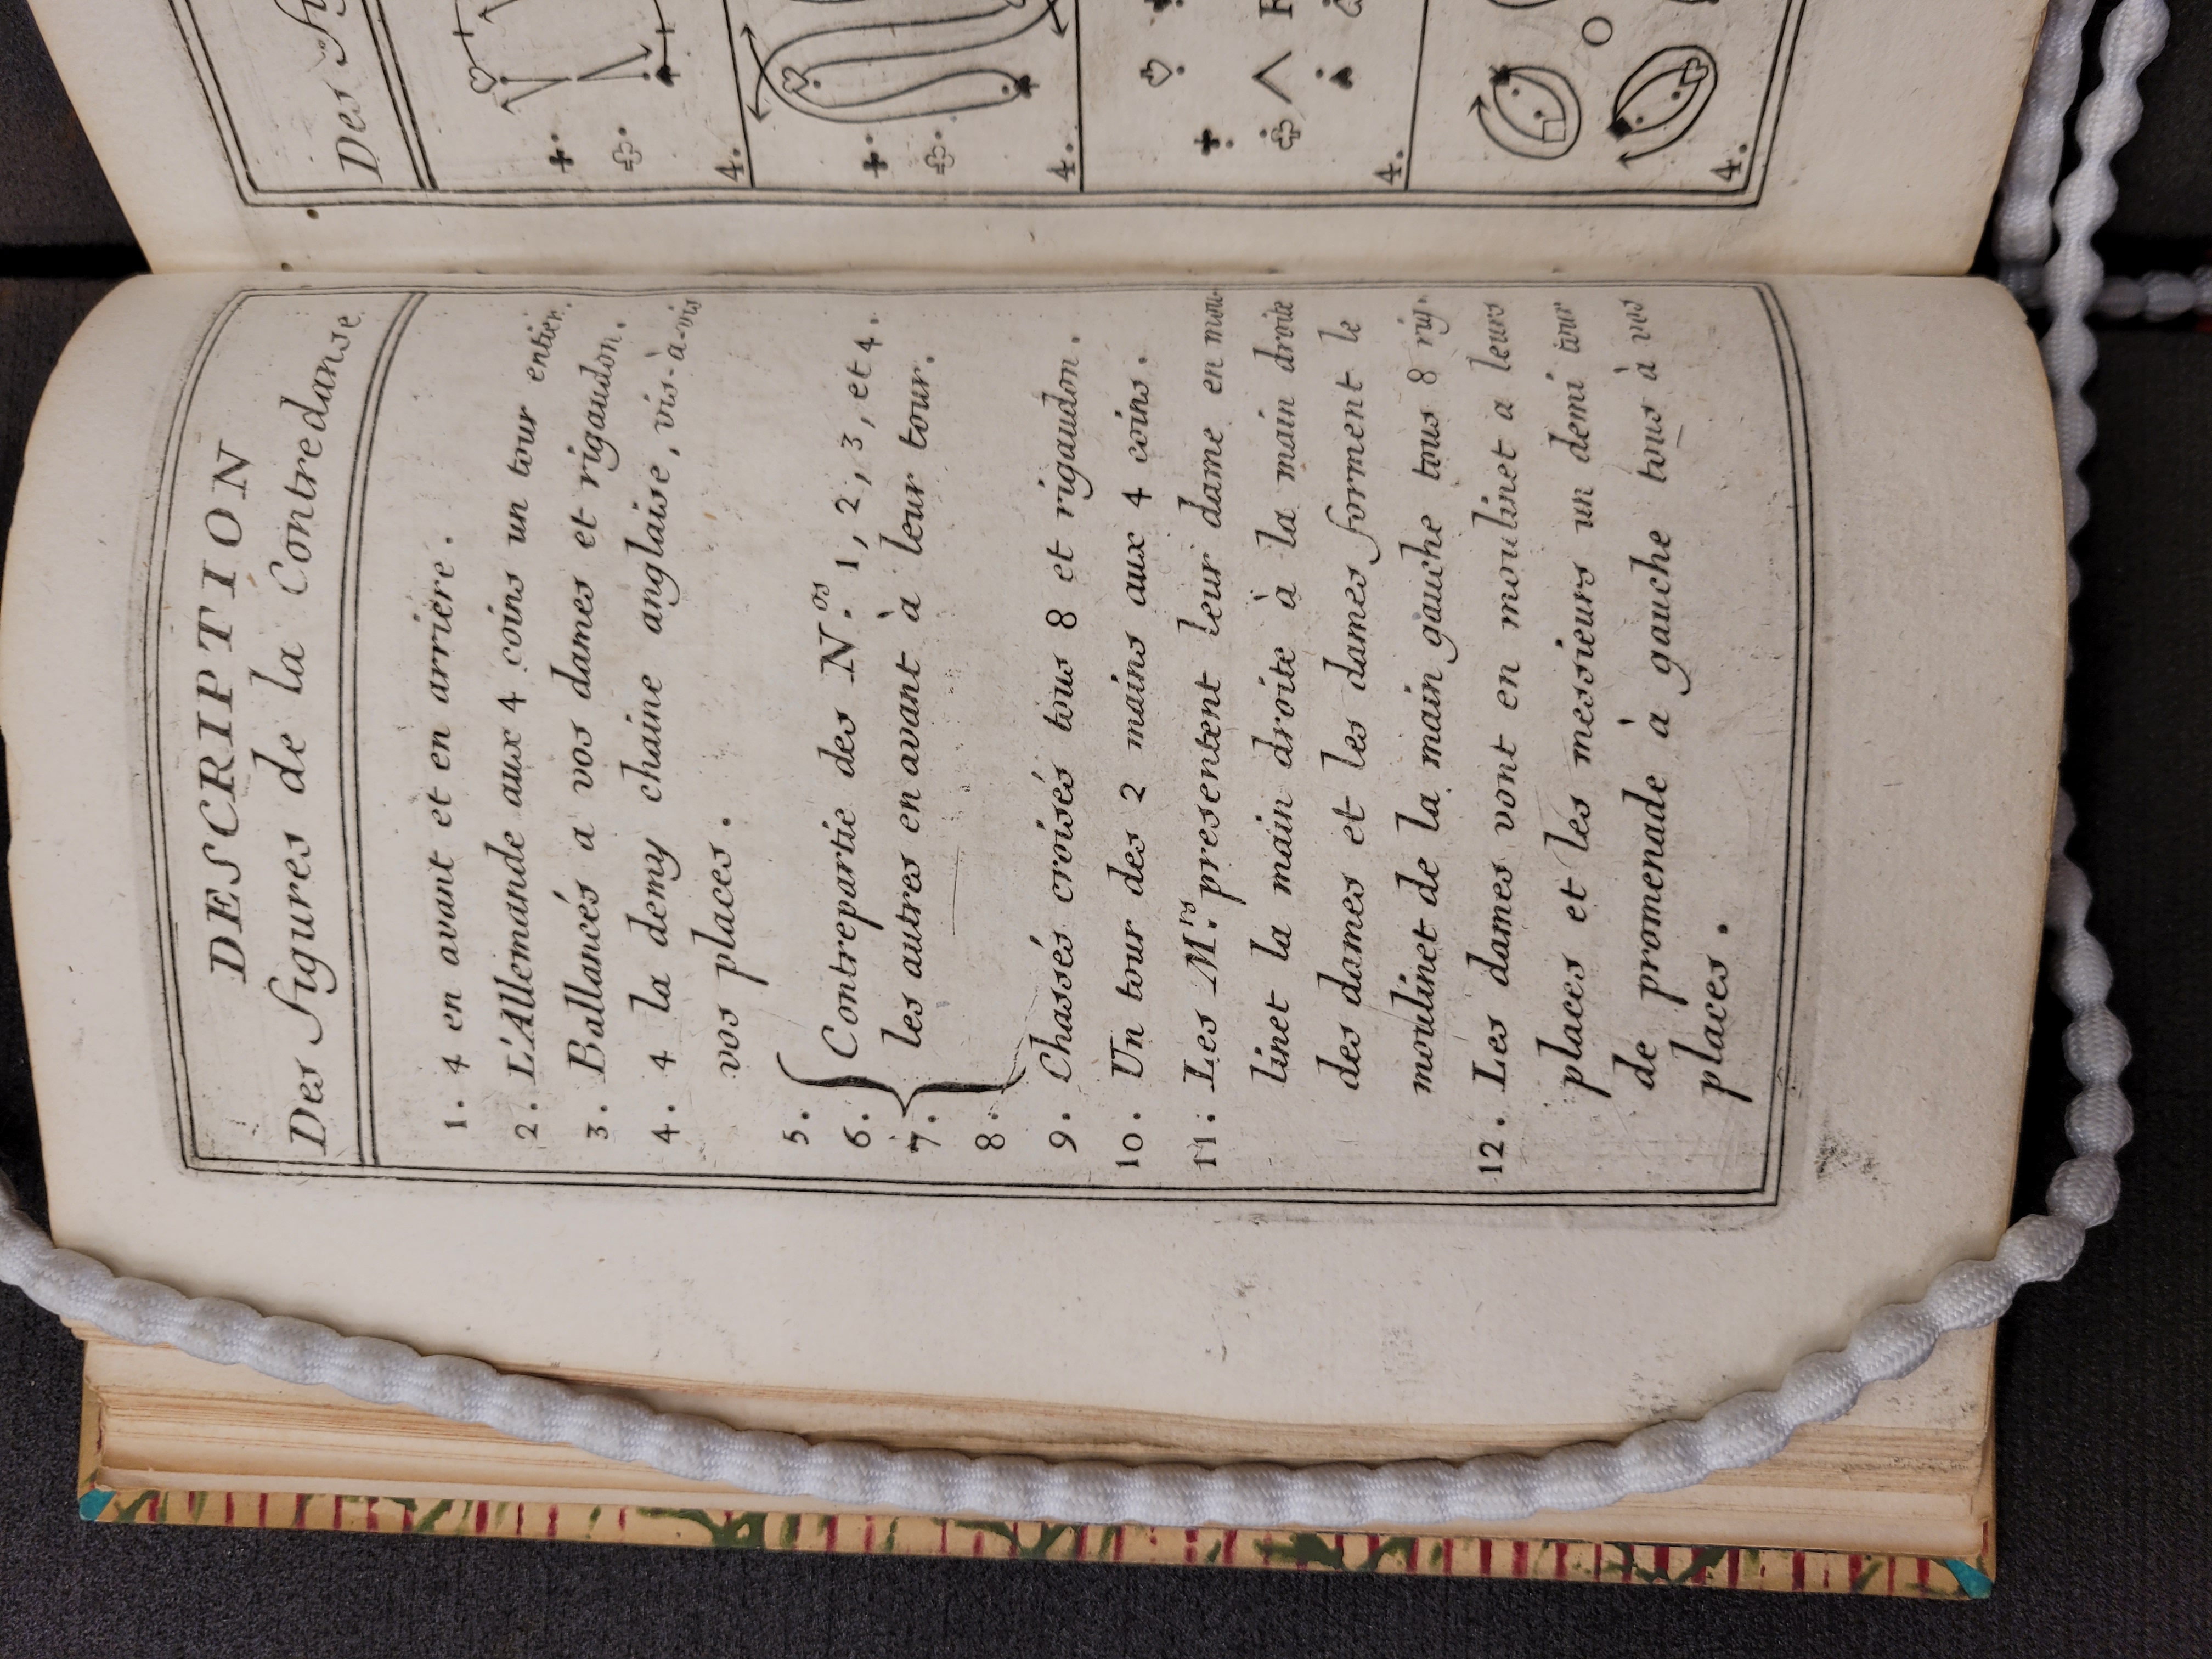 DESCRIPTION
Des figures de la Contredanse.
1. 4 en avant et en arriere.
2. L'Allemande aux 4 coins un tour entier.
3. Ballancés a vos dames et rigaudon.
4. 4 la demy chaine anglaise, vis-à-vis
vos places.
5.
6. Contrepartie des N.os 1, 2, 3, et 4.
7. les autres en avant à leur tour.
8.
9. Chassés croisés tous 8 et rigaudon.
10. Un tour des 2 mains aux 4 coins.
11. Les M.rs presentent leur dame en mou-
linet la main droite à la main droite
des dames et les dames forment le
moulinet de la main gauche tous 8 rig.
12. Les dames vont en moulinet a leurs
places et les messieurs un demi tour
de promenade à gauche tous à vos
places.
Des
4.
4.
4.
4.